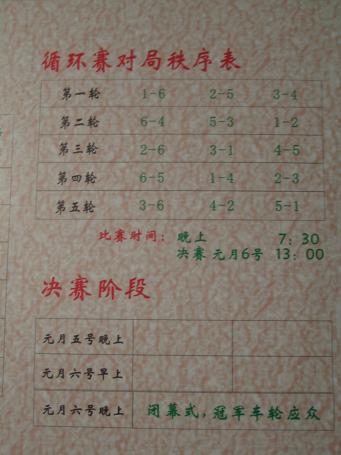 循环赛对局秩序表
第一轮 1-6 2-5 3-4
第二轮 6-4 5-3 1-2
第三轮 2-6 3-1 4-5
第四轮 6-5 1-4 2-3
第五轮 3-6 4-2 5-1
比赛时间: 晚上 7:30
决赛 元月6号 13:00
决赛阶段
元月五号晚上
元月六号早上
元月六号晚上 闭幕式,冠军车轮应众